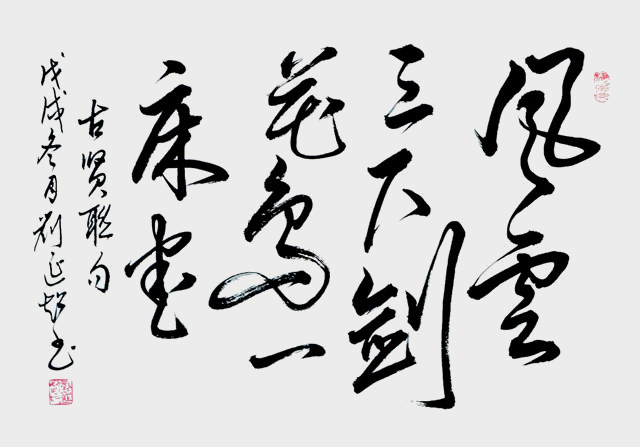 風雲
三尺劍
花鳥一
床書
古賢聯句
戊戌冬月劉延超書